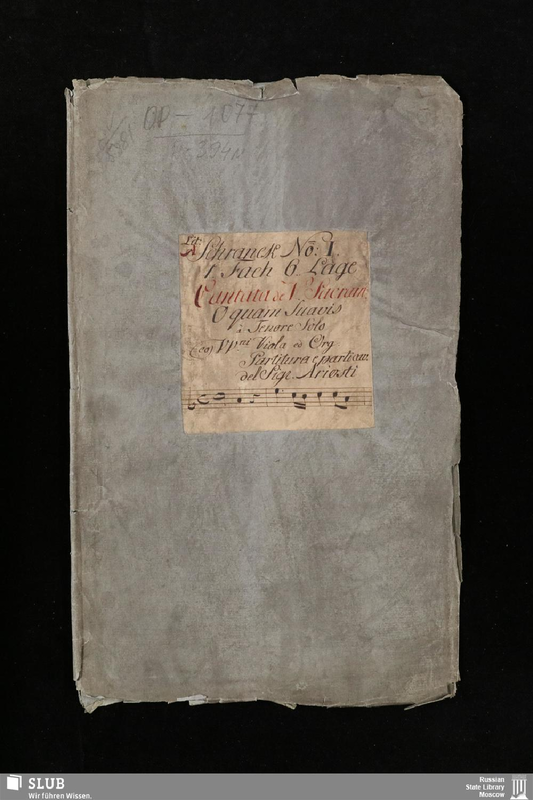 BD - 1077
Schranck No: 1.
1. Fach 6 Lage
Cantata de V. Sacram:
O quam Suavis
à Tenore Solo
Co VVni Viola ed Org
Partitura e parti
del Sigr. Ariosti
SLUB
Wir führen Wissen.
Russian
State Library
Moscow